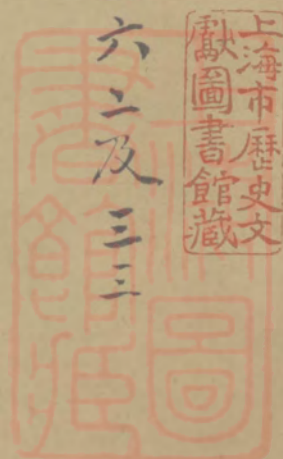 上海市歷史文
獻圖書館藏
六二及三三